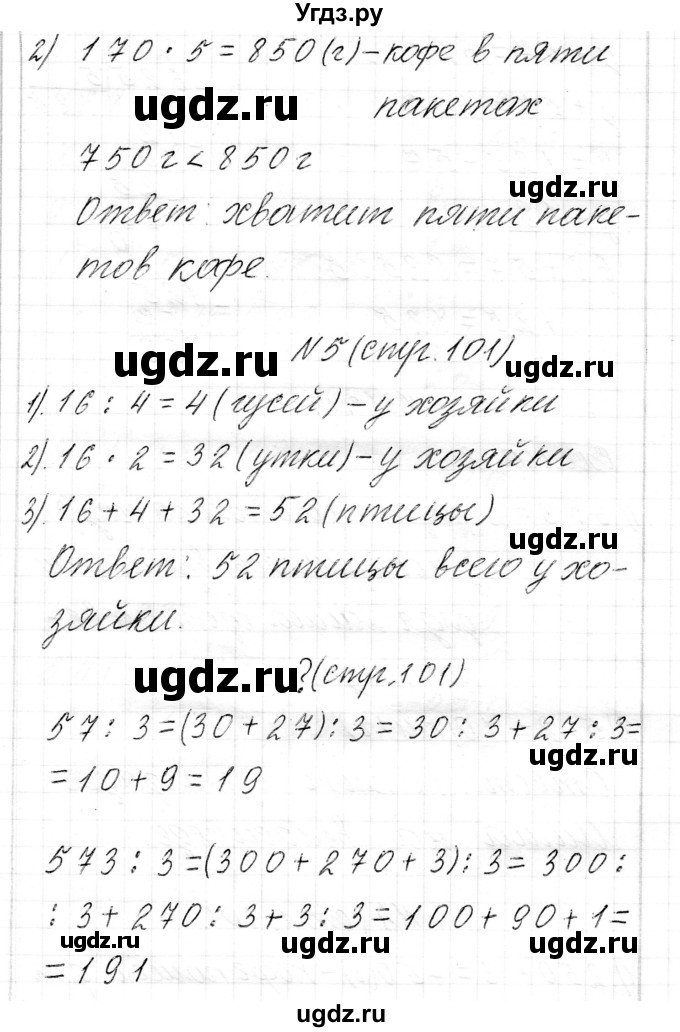 Угдз.ру
2) 170 · 5 = 850 (г) – кофе в пяти
ugdz.ru пакетах
750 г < 850 г
ugdz.ru
Ответ: хватит пяти паке-
тов кофе.
ugdz.ru N 5 (стр. 101) ugdz.ru
1). 16 : 4 = 4 (гусей) – у хозяйки
2). 16 · 2 = 32 (утки) – у хозяйки
3). 16 + 4 + 32 = 52 (птицы)
ugdz.ru
Ответ: 52 птицы всего у хо-
зяйки.
ugdz.ru ? (стр. 101)
57 : 3 = (30 + 27) : 3 = 30 : 3 + 27 : 3 =
ugdz.ru
= 10 + 9 = 19
573 : 3 = (300 + 270 + 3) : 3 = 300 :
: 3 + 270 : 3 + 3 : 3 = 100 + 90 + 1 =
ugdz.ru ugdz.ru ugdz.ru
= 191
ugdz.ru